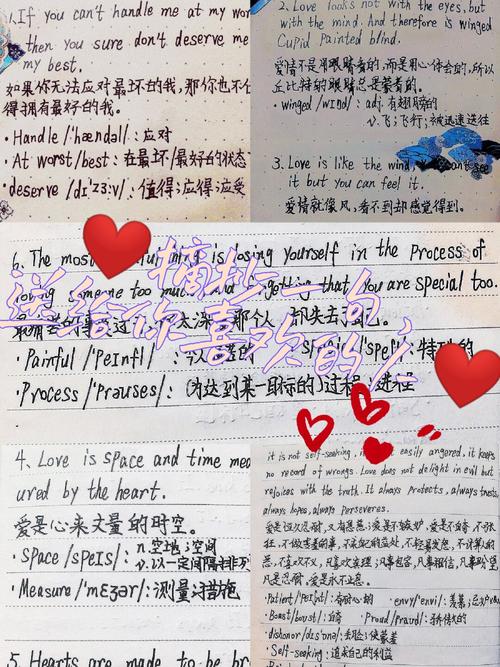 1. If you can't handle me at my wor
then you sure don't deserve me
my best.
如果你无法应对最坏的我，那你也不
得拥有最好的我。
·Handle /'hændəl/：应对
·At worst/best：在最坏/最好的状态
·deserve /dɪ'zɜːv/：值得；应得；应受
2. Love looks not with the eyes, but
with the mind. And therefore is winged
Cupid Painted blind.
爱情不是用眼睛看的，而是用心体会的，所以
丘比特的眼睛总是蒙着的。
·winged /wɪŋd/：adj. 有翅膀的
v. 飞；飞行；被迅速送往
3. Love is like the wind, see
it but you can feel it.
爱情就像风，看不到却感觉得到。
摘抄一句
送给你喜欢的人
6. The most is losing yourself in the Process of
loving someone too that you are special too.
·Painful /'peɪnfl/：特殊的
·Process /'prəʊses/：(为达到某一目标的)过程；进程
4. Love is space and time mea
ured by the heart.
爱是心来丈量的时空。
·space /speɪs/：n. 空地；空间
v. 以一定间隔排列
·Measure /'meʒər/：测量；措施
5. Hearts are made to be br
it is not self-seeking, easily angered, it keeps
no record of wrongs. Love does not delight in evil but
rejoices with the truth. It always protects, always trusts,
always hopes, always Perseveres.
爱是恒久忍耐，又有恩慈；爱是不嫉妒，爱是不自夸，不张
狂，不做害羞的事，不求自己的益处，不轻易发怒，不计算人的
恶，不喜欢不义，只喜欢真理；凡事包容，凡事相信，凡事盼望
凡是忍耐，爱是永不止息。
·Patient /'peɪʃnt/：有耐心的 ·envy /'envi/：羡慕；
·Boast /bəʊst/：自夸 ·Proud /praʊd/：骄傲的
·dishonor /dɪs'ɒnə/：丢脸；使蒙羞
·Self-seeking：追求自己的利益